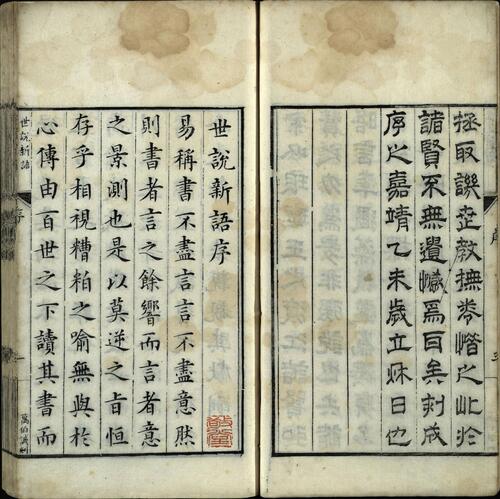 拯取譏世教撫卷惜之此於
諸賢不無遺憾焉耳矣刻成
序之嘉靖乙未歲立秌日也
世說新語序
易稱書不盡言言不盡意然
則書者言之餘響而言者意
之景測也是以莫逆之旨恒
存乎相視糟粕之喻無與於
心傳由百世之下讀其書而
世說新語
序
一